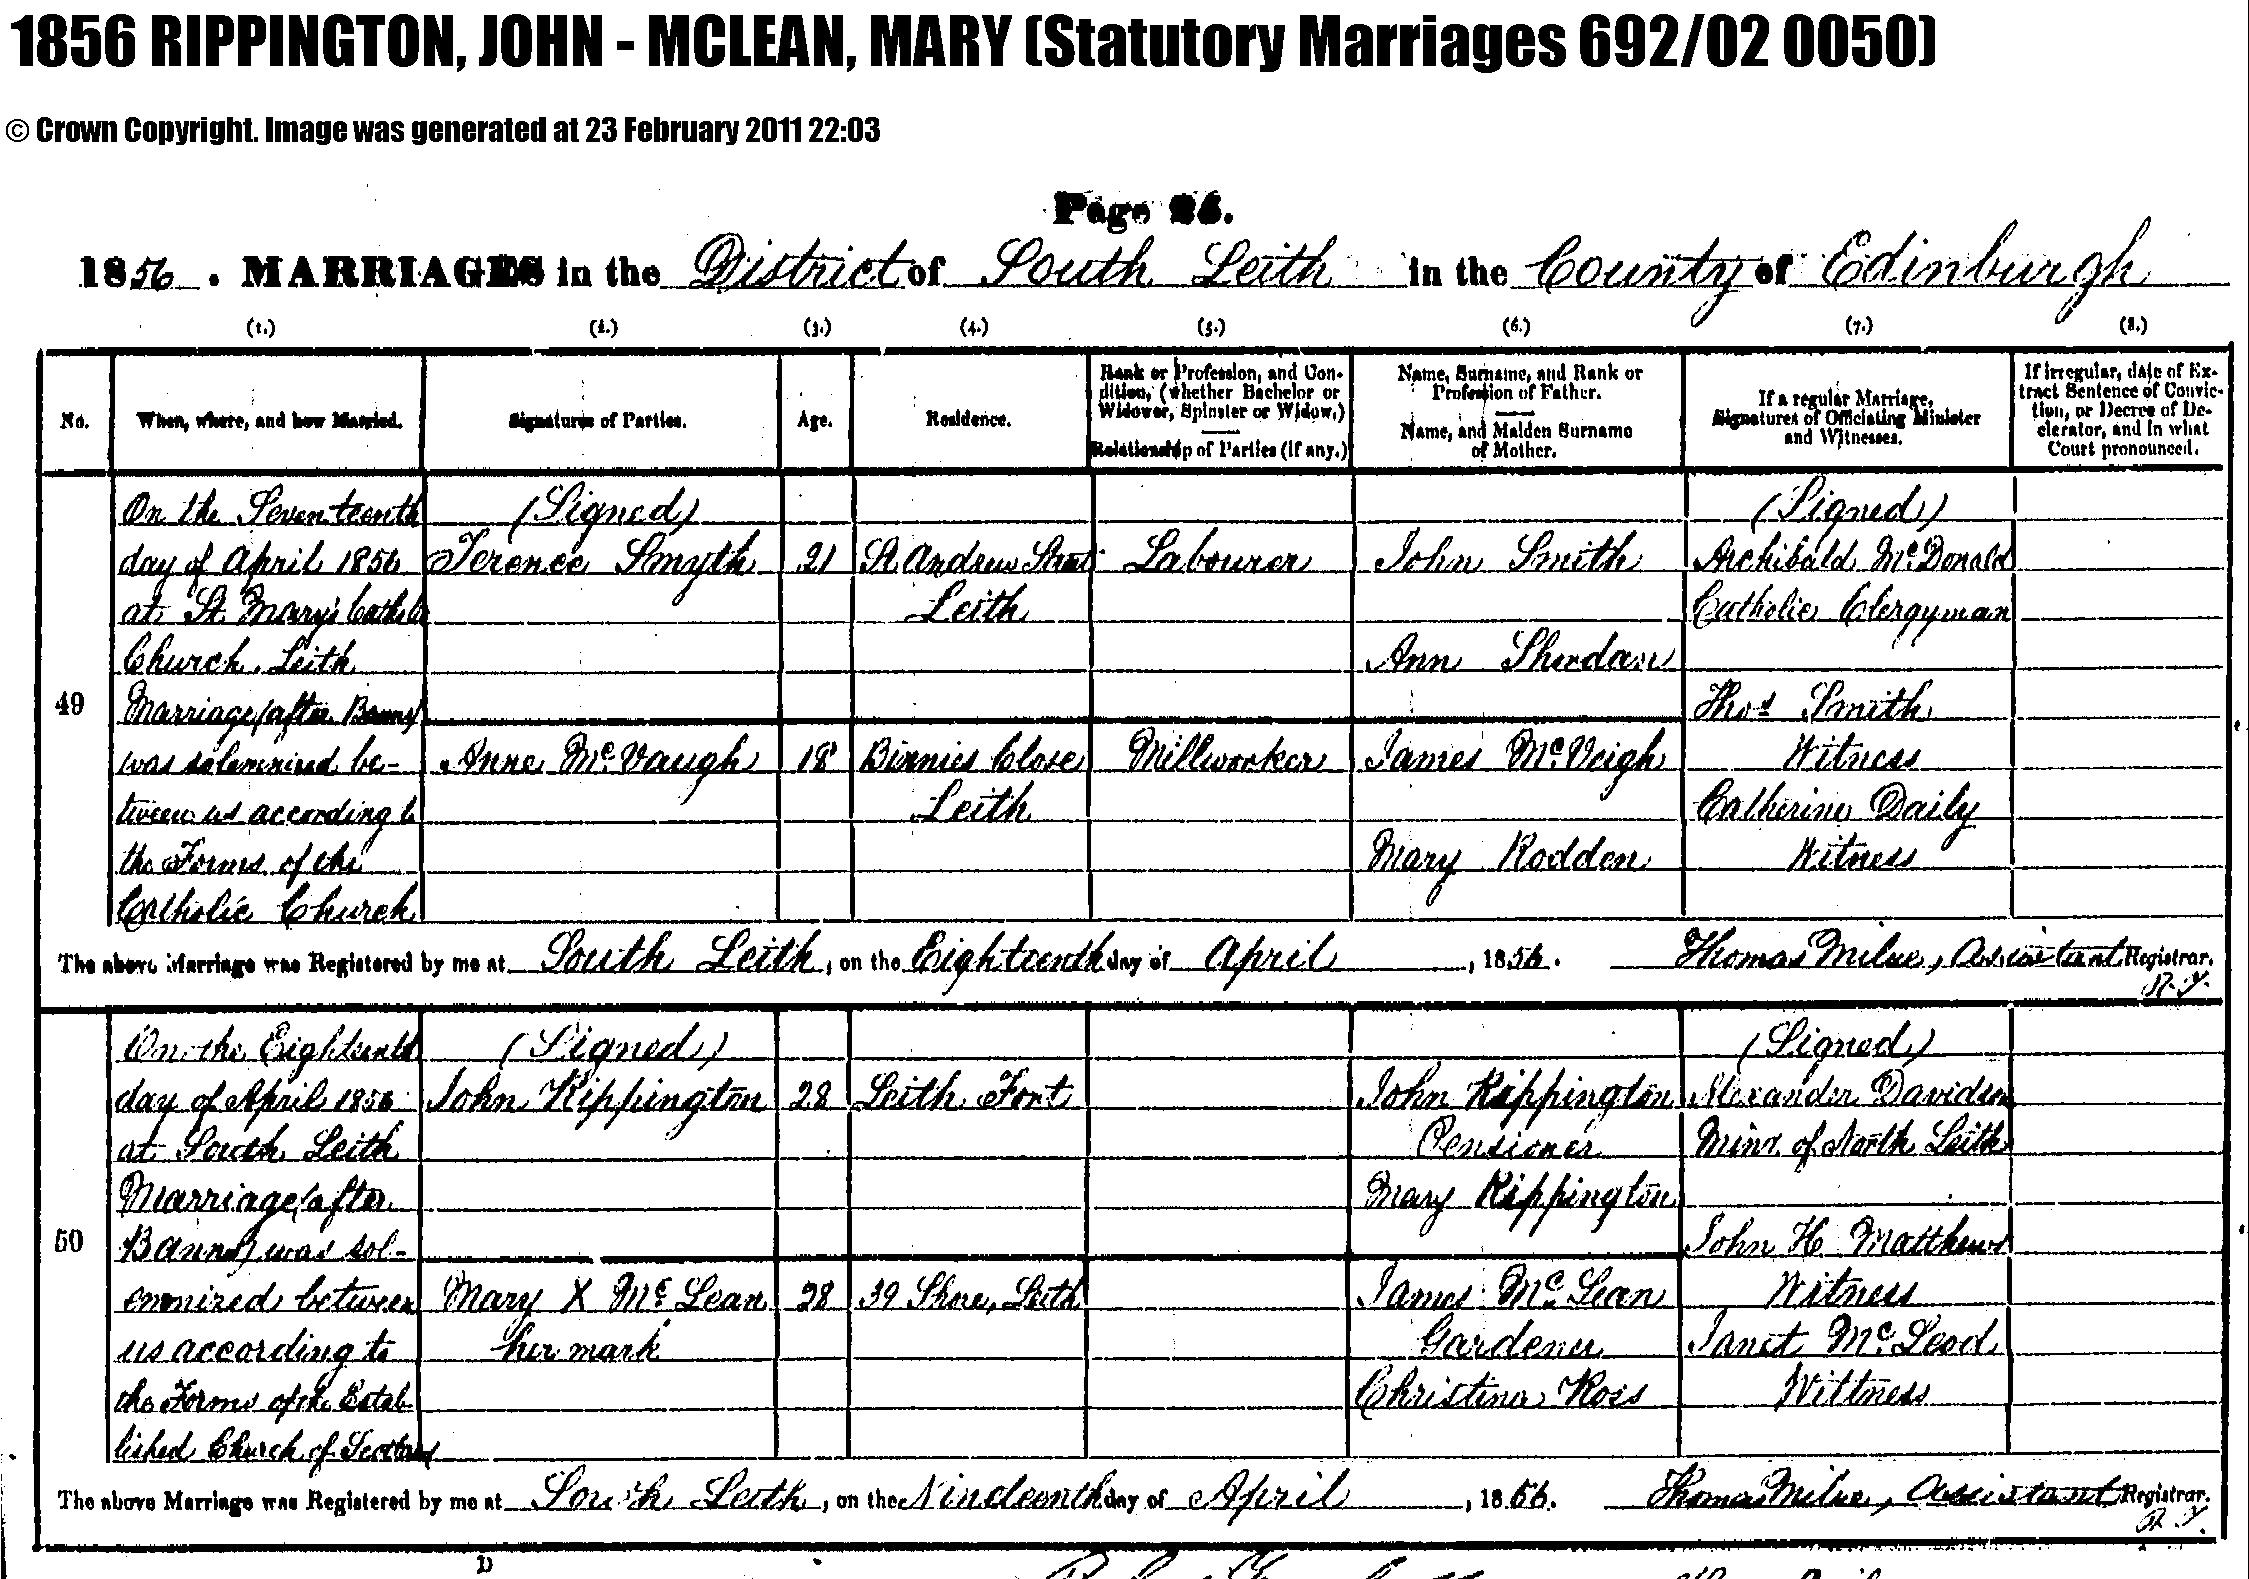 1856 RIPPINGTON, JOHN - MCLEAN, MARY (Statutory Marriages 692/02 0050)
© Crown Copyright. Image was generated at 23 February 2011 22:03
Page 25.
1856. MARRIAGES in the District of South Leith in the County of Edinburgh
(1.) (2.) (3.) (4.) (5.) (6.) (7.) (8.)
No.
When, where, and how Married.
Signatures of Parties.
Age.
Residence.
Rank or Profession, and Con-
dition, (whether Bachelor or
Widower, Spinster or Widow.)
Relationship of Parties (if any.)
Name, Surname, and Rank or
Profession of Father.
Name, and Maiden Surname
of Mother.
If a regular Marriage,
Signatures of Officiating Minister
and Witnesses.
If irregular, date of Ex-
tract Sentence of Convic-
tion, or Decree of De-
clerator, and in what
Court pronounced.
49
On the Seventeenth
day of April 1856
at St Mary's Catholic
Church, Leith
Marriage (after Banns)
was solemnized be-
tween us according to
the Forms of the
Catholic Church
(Signed)
Terence Smyth
Anne McVaugh
21
18
St Andrew Street
Leith
Binnies Close
Leith
Labourer
Millworker
John Smith
Ann Sheridan
James McVeigh
Mary Rodden
(Signed)
Archibald McDonald
Catholic Clergyman
Thos Smith
Witness
Catherine Daily
Witness
The above Marriage was Registered by me at South Leith, on the Eighteenth day of April, 1856. Thomas Milne, Assistant Registrar.
50
On the Eighteenth
day of April 1856
at South Leith
Marriage (after
Banns) was sol-
emnized between
us according to
the Forms of the Estab-
lished Church of Scotland
(Signed)
John Rippington
Mary X McLean
her mark
28
28
Leith Fort
39 Shore, Leith
John Rippington
Pensioner
Mary Rippington
James McLean
Gardener
Christina Ross
(Signed)
Alexander Davidson
Minr. of North Leith
John H Matthews
Witness
Janet McLeod
Wittness
The above Marriage was Registered by me at South Leith, on the Nindeenth day of April, 1856. Thomas Milne, Assistant Registrar.
D